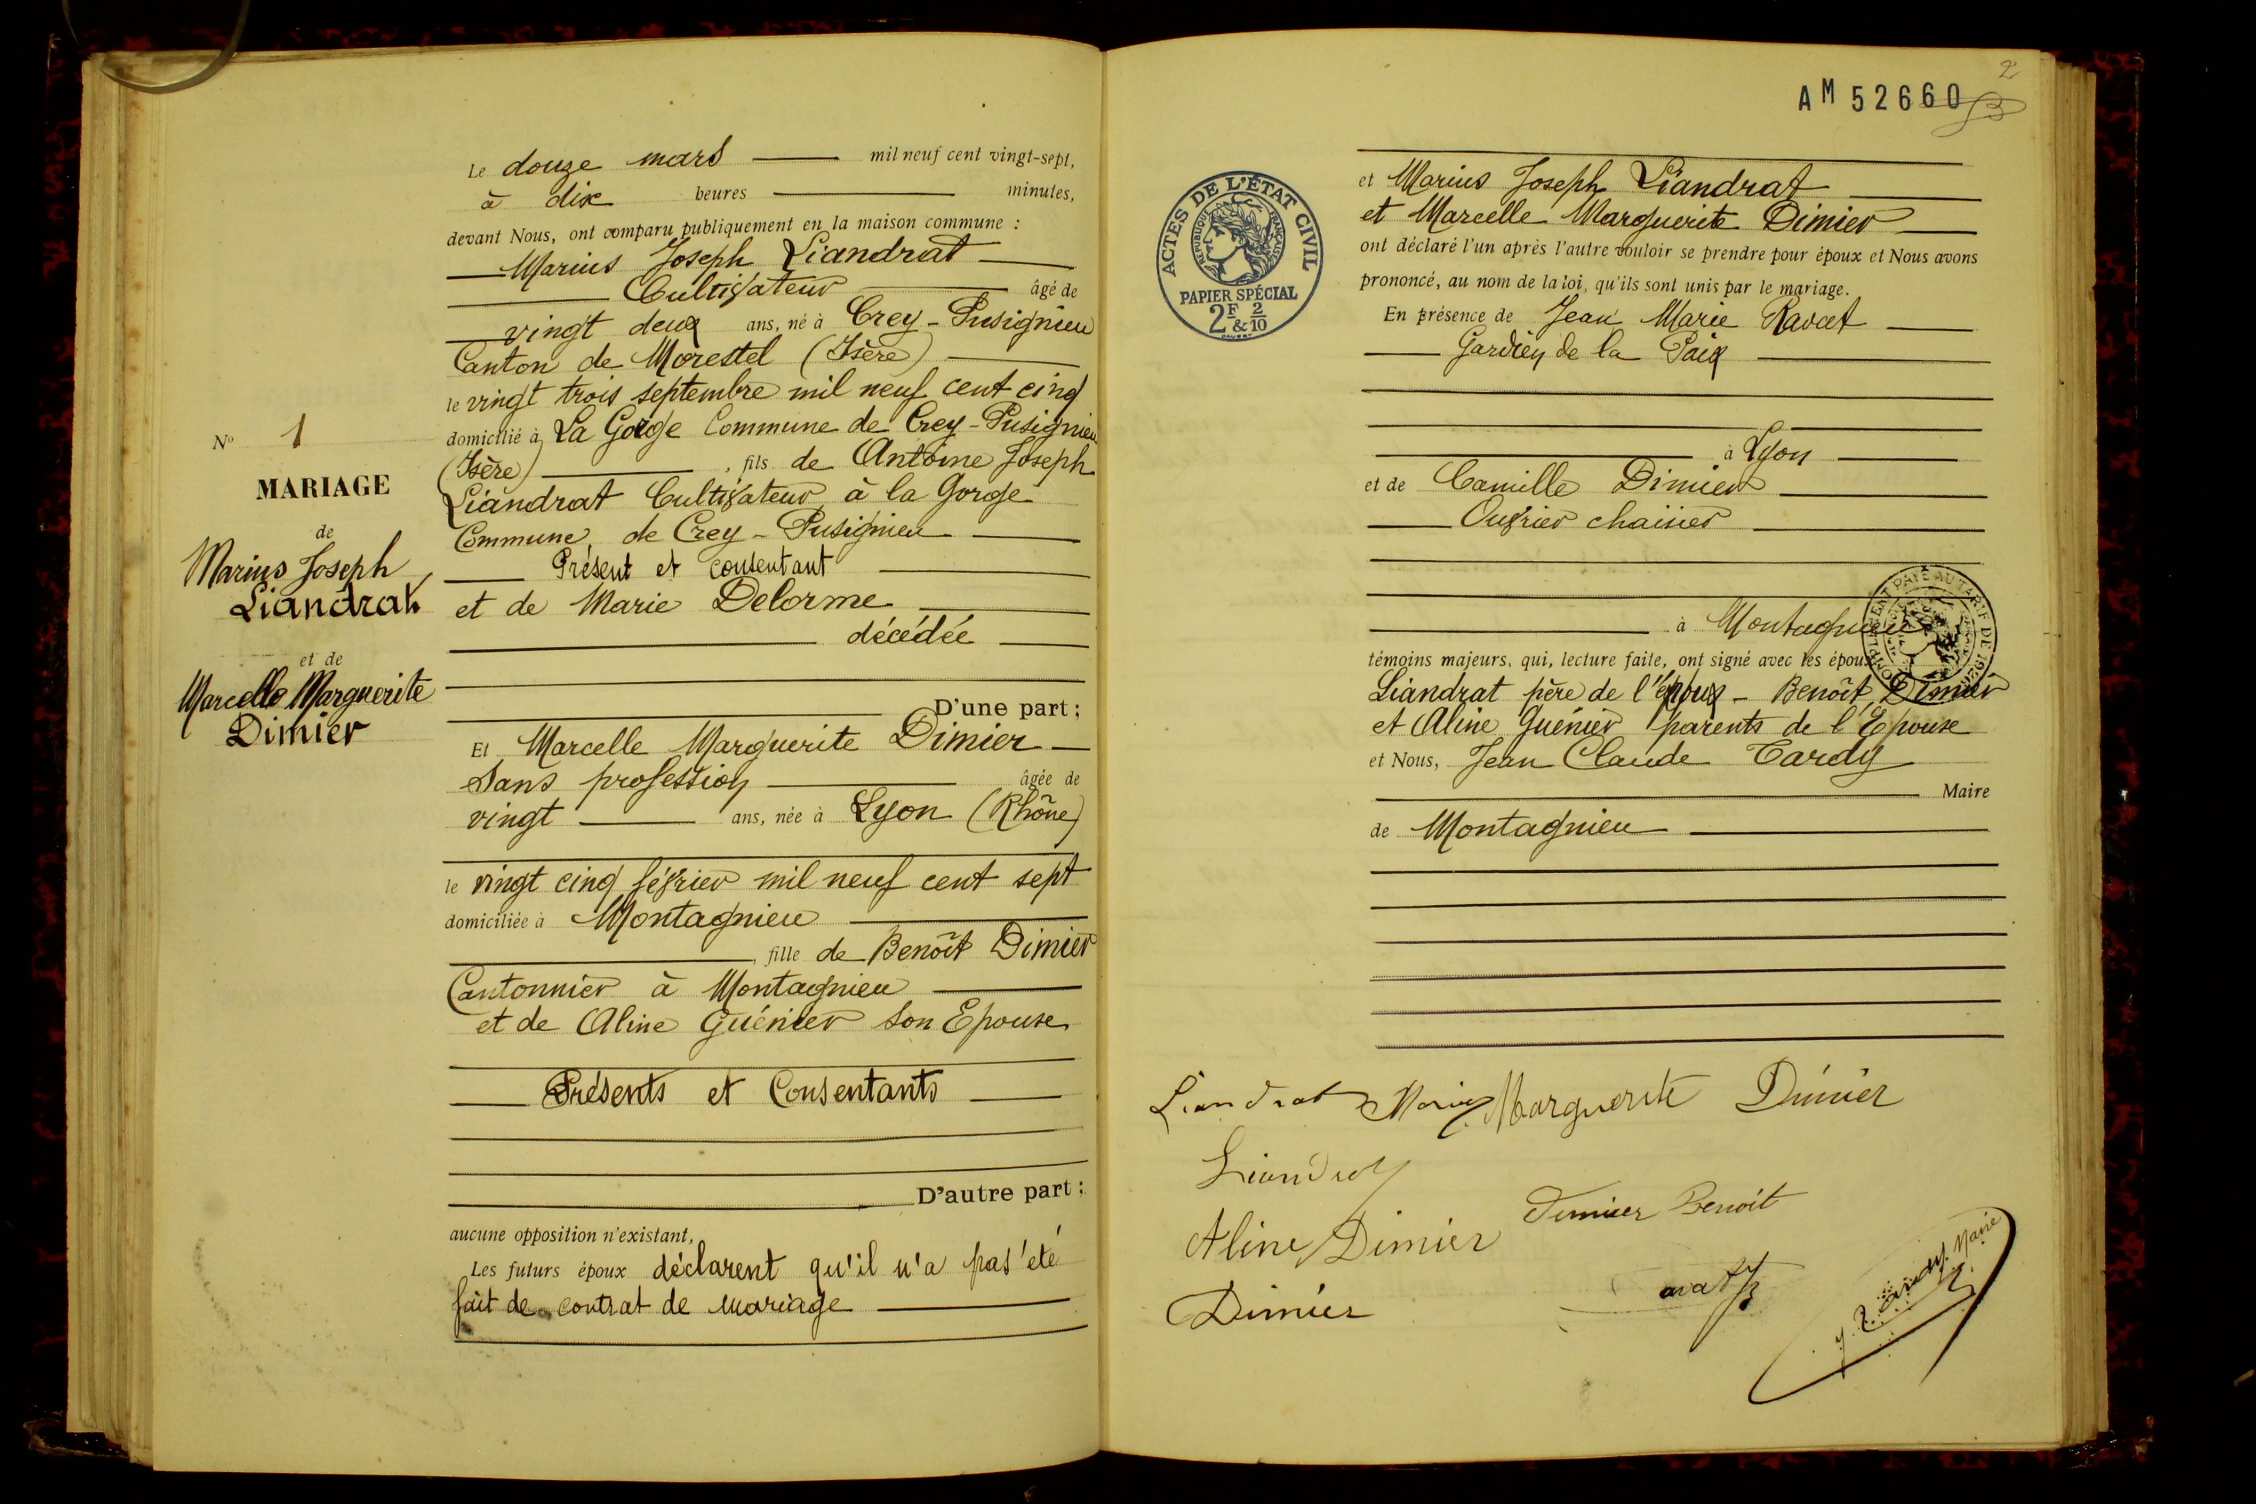 Le douze mars mil neuf cent vingt-sept,
à dix heures minutes,
devant Nous, ont comparu publiquement en la maison commune :
Marius Joseph Liandrat
Cultivateur âgé de
vingt deux ans, né à Crey-Pusignieu
Canton de Morestel (Isère)
le vingt trois septembre mil neuf cent cinq
domicilié à La Gorge Commune de Crey-Pusignieu
(Isère), fils de Antoine Joseph
Liandrat Cultivateur à la Gorge
Commune de Crey-Pusignieu
Présent et consentant
et de Marie Delorme
décédée
D'une part ;
Et Marcelle Marguerite Dimier
Sans profession âgée de
vingt ans, née à Lyon (Rhône)
le vingt cinq février mil neuf cent sept
domiciliée à Montagnieu
, fille de Benoît Dimier
Cantonnier à Montagnieu
et de Aline Guénier son Epouse
Présents et Consentants
D'autre part ;
aucune opposition n'existant,
Les futurs époux déclarent qu'il n'a pas été
fait de contrat de mariage
No 1
MARIAGE
de
Marius Joseph
Liandrat
et de
Marcelle Marguerite
Dimier
2
AM 52660
ACTES DE L'ÉTAT CIVIL
RÉPUBLIQUE FRANÇAISE
PAPIER SPÉCIAL
2F & 2/10
et Marius Joseph Liandrat
et Marcelle Marguerite Dimier
ont déclaré l'un après l'autre vouloir se prendre pour époux et Nous avons
prononcé, au nom de la loi, qu'ils sont unis par le mariage.
En présence de Jean Marie Ravat
Gardien de la Paix
à Lyon
et de Camille Dimier
Ouvrier chaisier
à Montagnieu
témoins majeurs, qui, lecture faite, ont signé avec les époux
Liandrat père de l'époux - Benoît Dimier
et Aline Guénier parents de l'Epouse
et Nous, Jean Claude Tardy
Maire
de Montagnieu
Liandrat Marius Marguerite Dimier
Liandrat
Dimier Benoit
Aline Dimier
Dimier